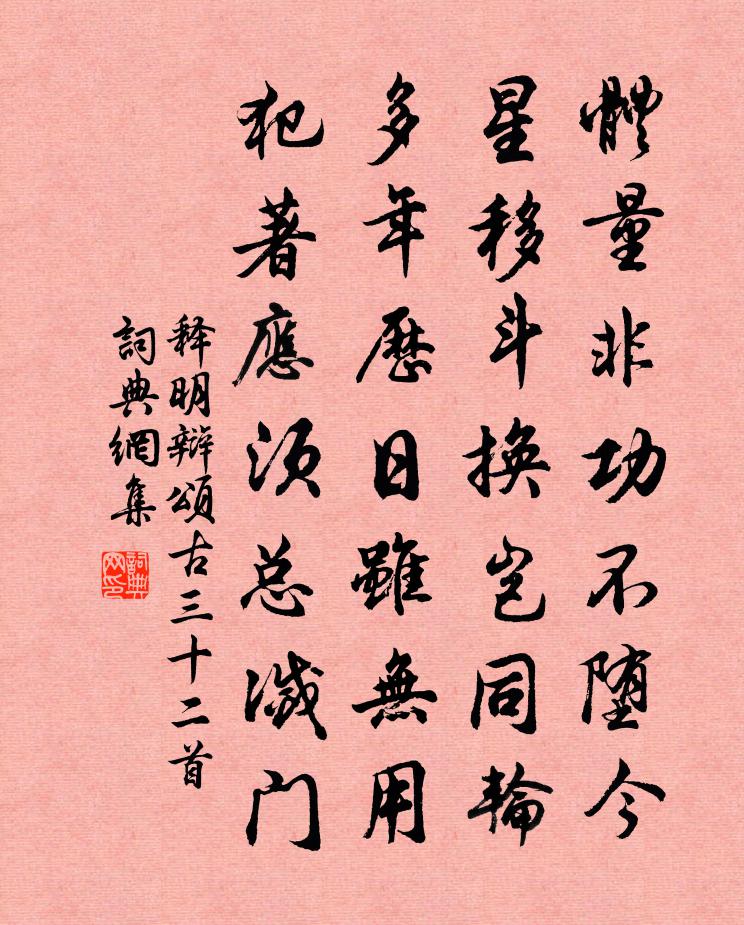 體量非功不堕今
星移斗換岂同輪
多年歷日雖無用
犯著應須总滅门
释明辯頌古三十二首
詞典網集
詞典
网印